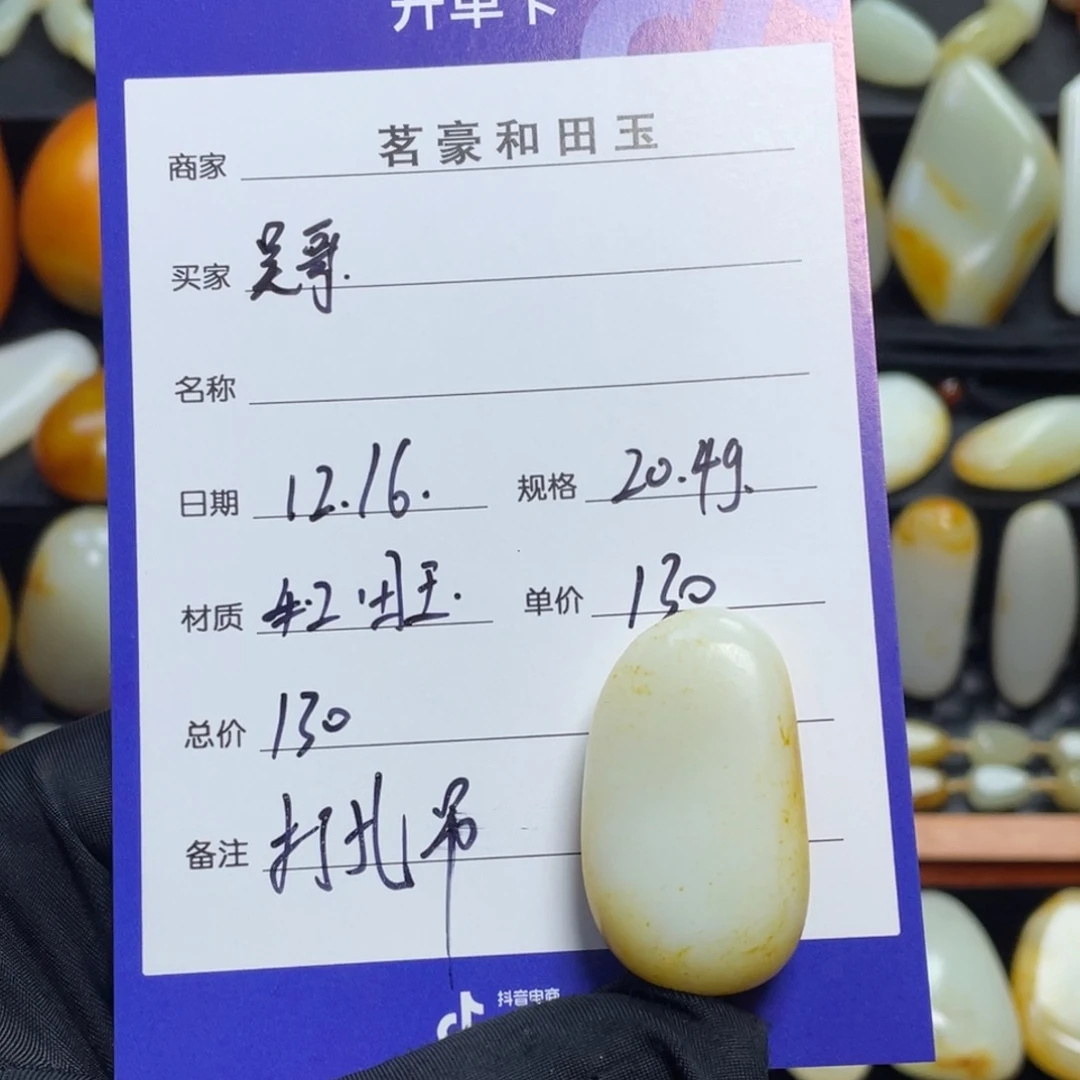 开单卡
商家 茗豪和田玉
买家 吴哥.
名称
日期 12.16. 规格 20.4g.
材质 和田玉. 单价 130
总价 130
备注 打孔吊
抖音电商